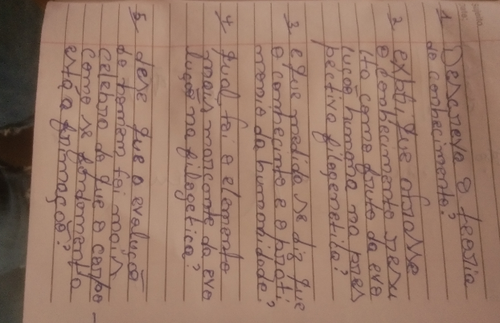 1 Descreva a teoria
do conhecimento?
2 explique a frase
o conhecimento resu
lta como fruto da evo
lução humana na pres
pectiva filogenetica?
3 eque medida se diz que
o conhecimento e o patri,
monio da humanidade?
4 qual foi o elemento
mais marcante da evo
lução na filogetica?
5 dese que a evolução
do homem foi mais
celebral do que a corpo-
como se fundamenta
esta afirmação?